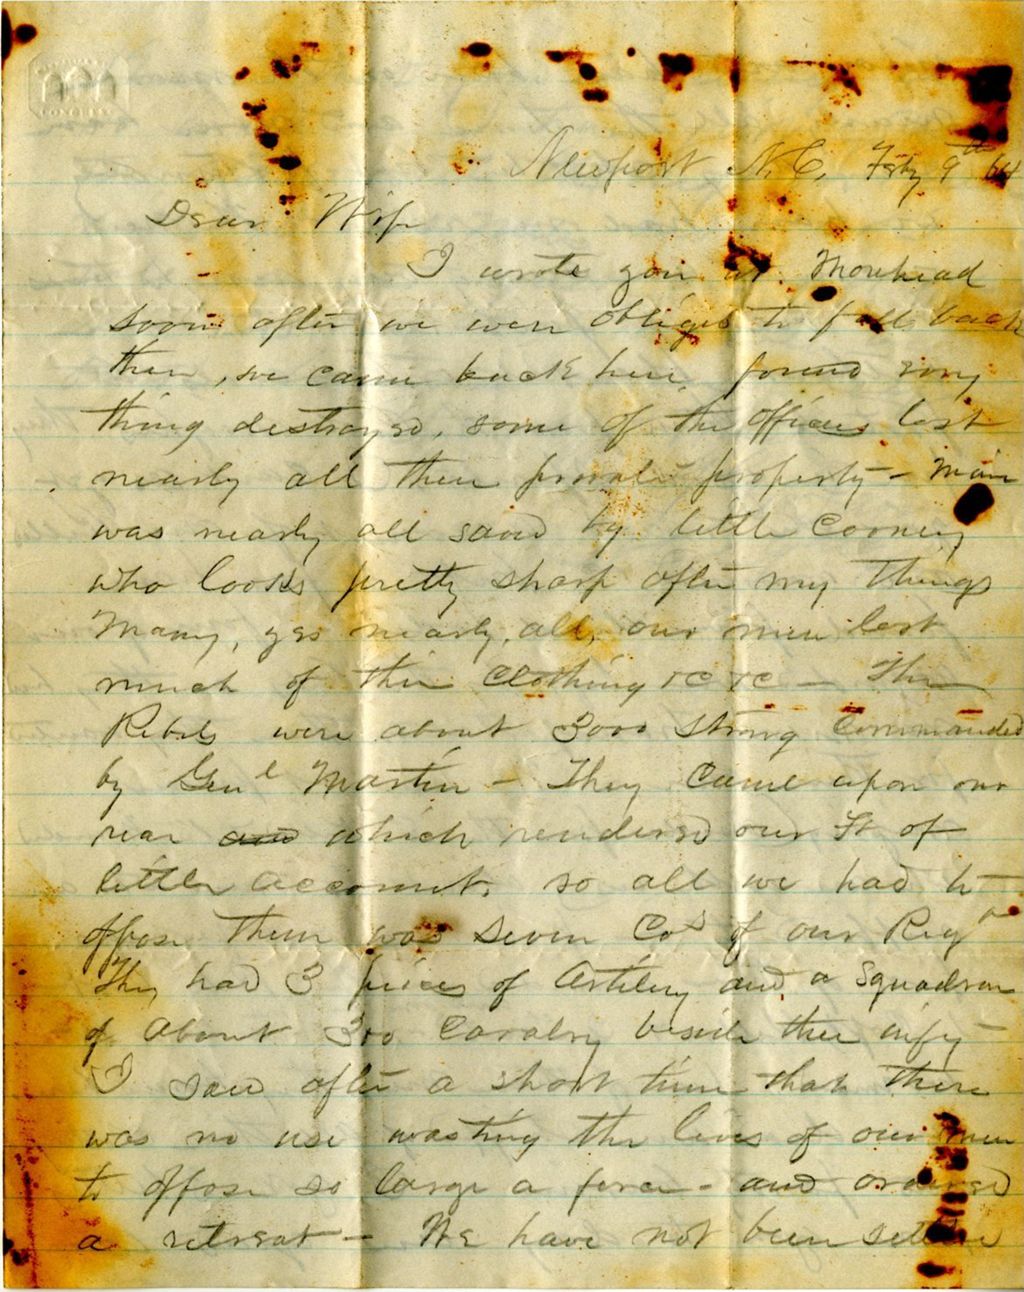 CONGRESS
Newport N.C. Feby 9th 64
Dear Wife
I wrote you at Morehead
soon after we were obliged to fall back
then, we came back here, found every
thing destroyed, some of the officers lost
nearly all their private property - Mine
was nearly all saved by little Cooney
who looks pretty sharp after my things
Many, yes nearly, all, our men lost
much of their Clothing &C &C - The
Rebels were about 3000 strong Commanded
by Genl Martin - They came upon our
rear and which rendered our Ft of
little account, so all we had to
oppose them was seven Cos of our Regt
They had 3 pieces of Artilery and a Squadron
of about 300 Cavalry beside their infy -
I saw after a short time that there
was no use wasting the lives of our men
to oppose so large a force - and ordered
a retreat - We have not been settled